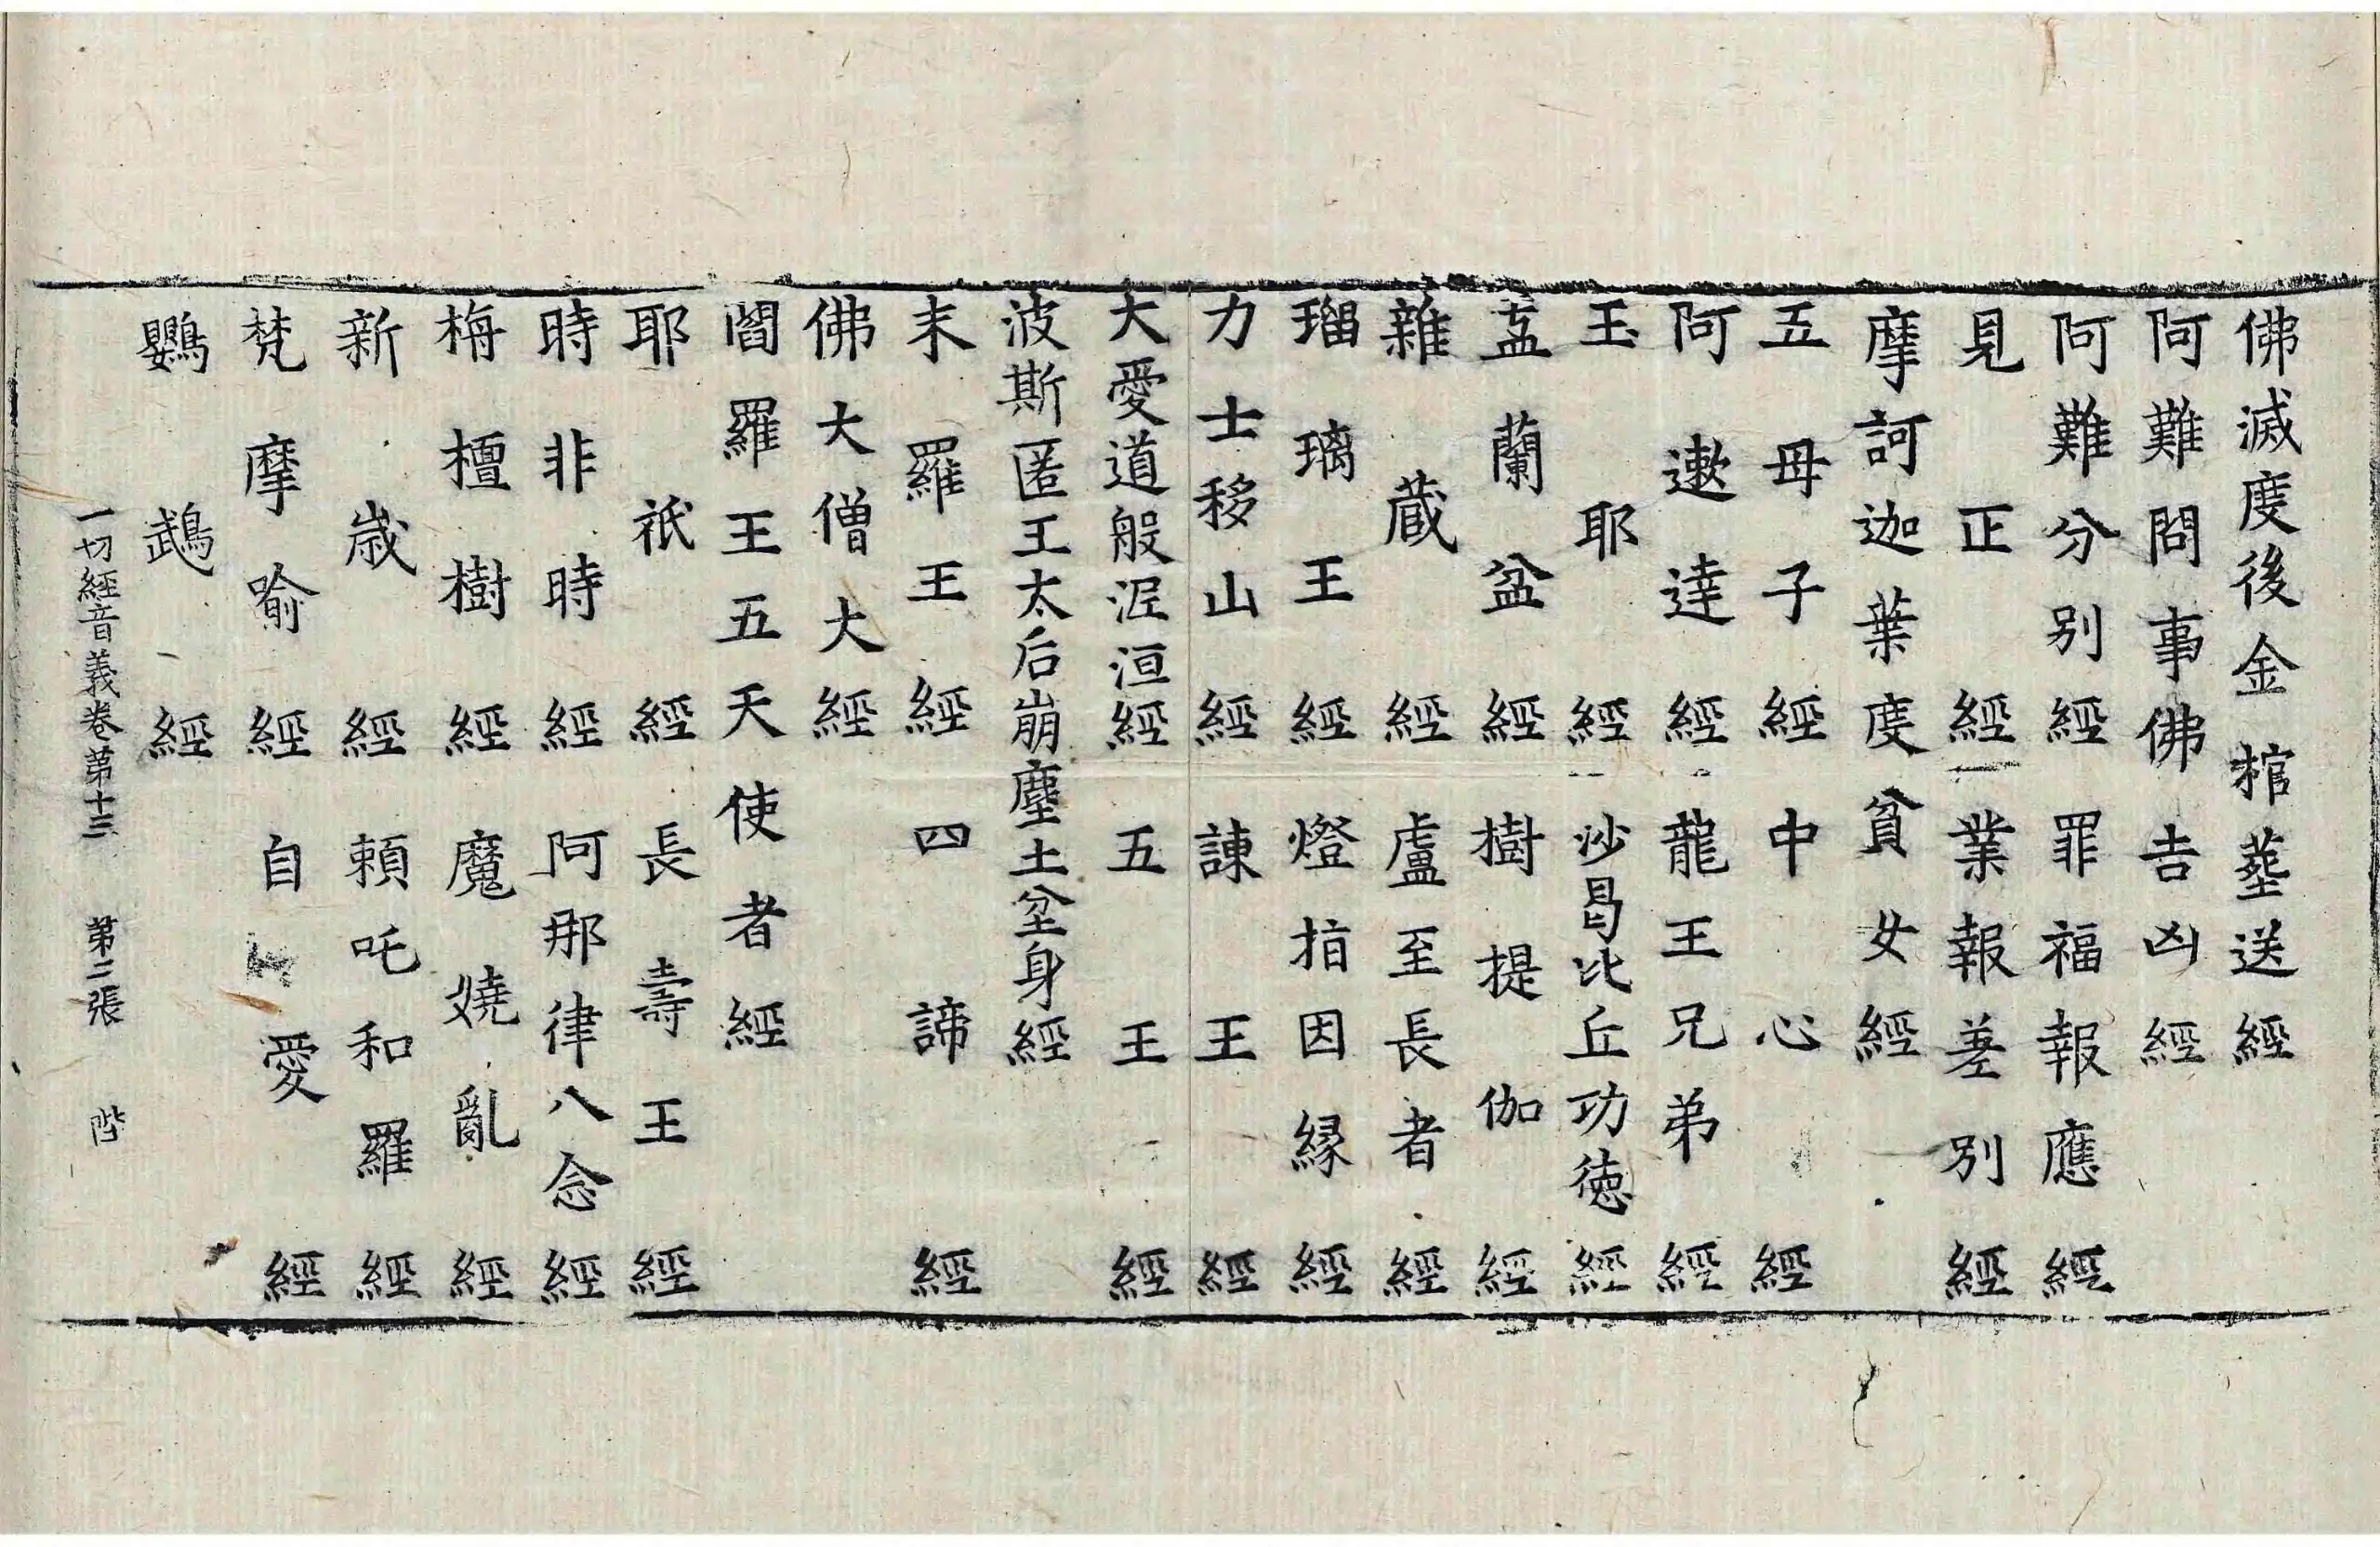 佛滅度後金棺葬送經
阿難問事佛吉凶經
阿難分別經 罪福報應經
見正經 業報差別經
摩訶迦葉度貧女經
五母子經 中心經
阿遬達經 龍王兄弟經
玉耶經 沙曷比丘功德經
盂蘭盆經 樹提伽經
雜藏經 盧至長者經
瑠璃王經 燈指因緣經
力士移山經 諫王經
大愛道般泥洹經 五王經
波斯匿王太后崩塵土坌身經
末羅王經 四諦經
佛大僧大經
閻羅王五天使者經
耶祇經 長壽王經
時非時經 阿那律八念經
栴檀樹經 魔嬈亂經
新歲經 頼吒和羅經
梵摩喻經 自愛經
鸚鵡經
一切經音義卷第十三 第二張 階